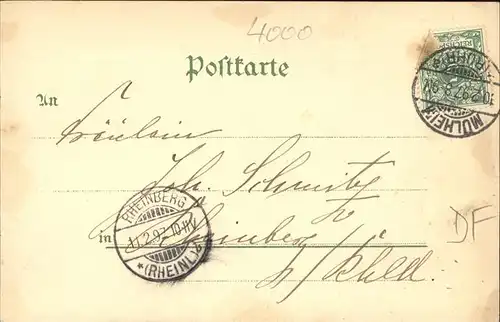 4000
Postkarte
An
Fräulein
Joh. Schmitz
in Rheinberg
b/ Rhld.
DF
MÜLHEIM
(RUHR)
RHEINBERG
2.97.10-11V
*(RHEINL)*